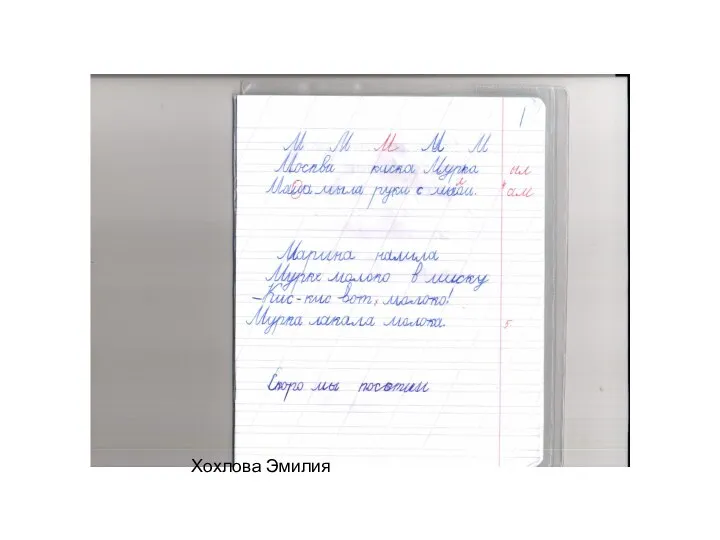 1
М М М М М
Москва киска Мурка ым
Маша мыла руки с мылом. але
Марина налила
Мурке молоко в миску
– Кис-кис вот, молоко!
Мурка лакала молока. 5
Скоро мы
Хохлова Эмилия